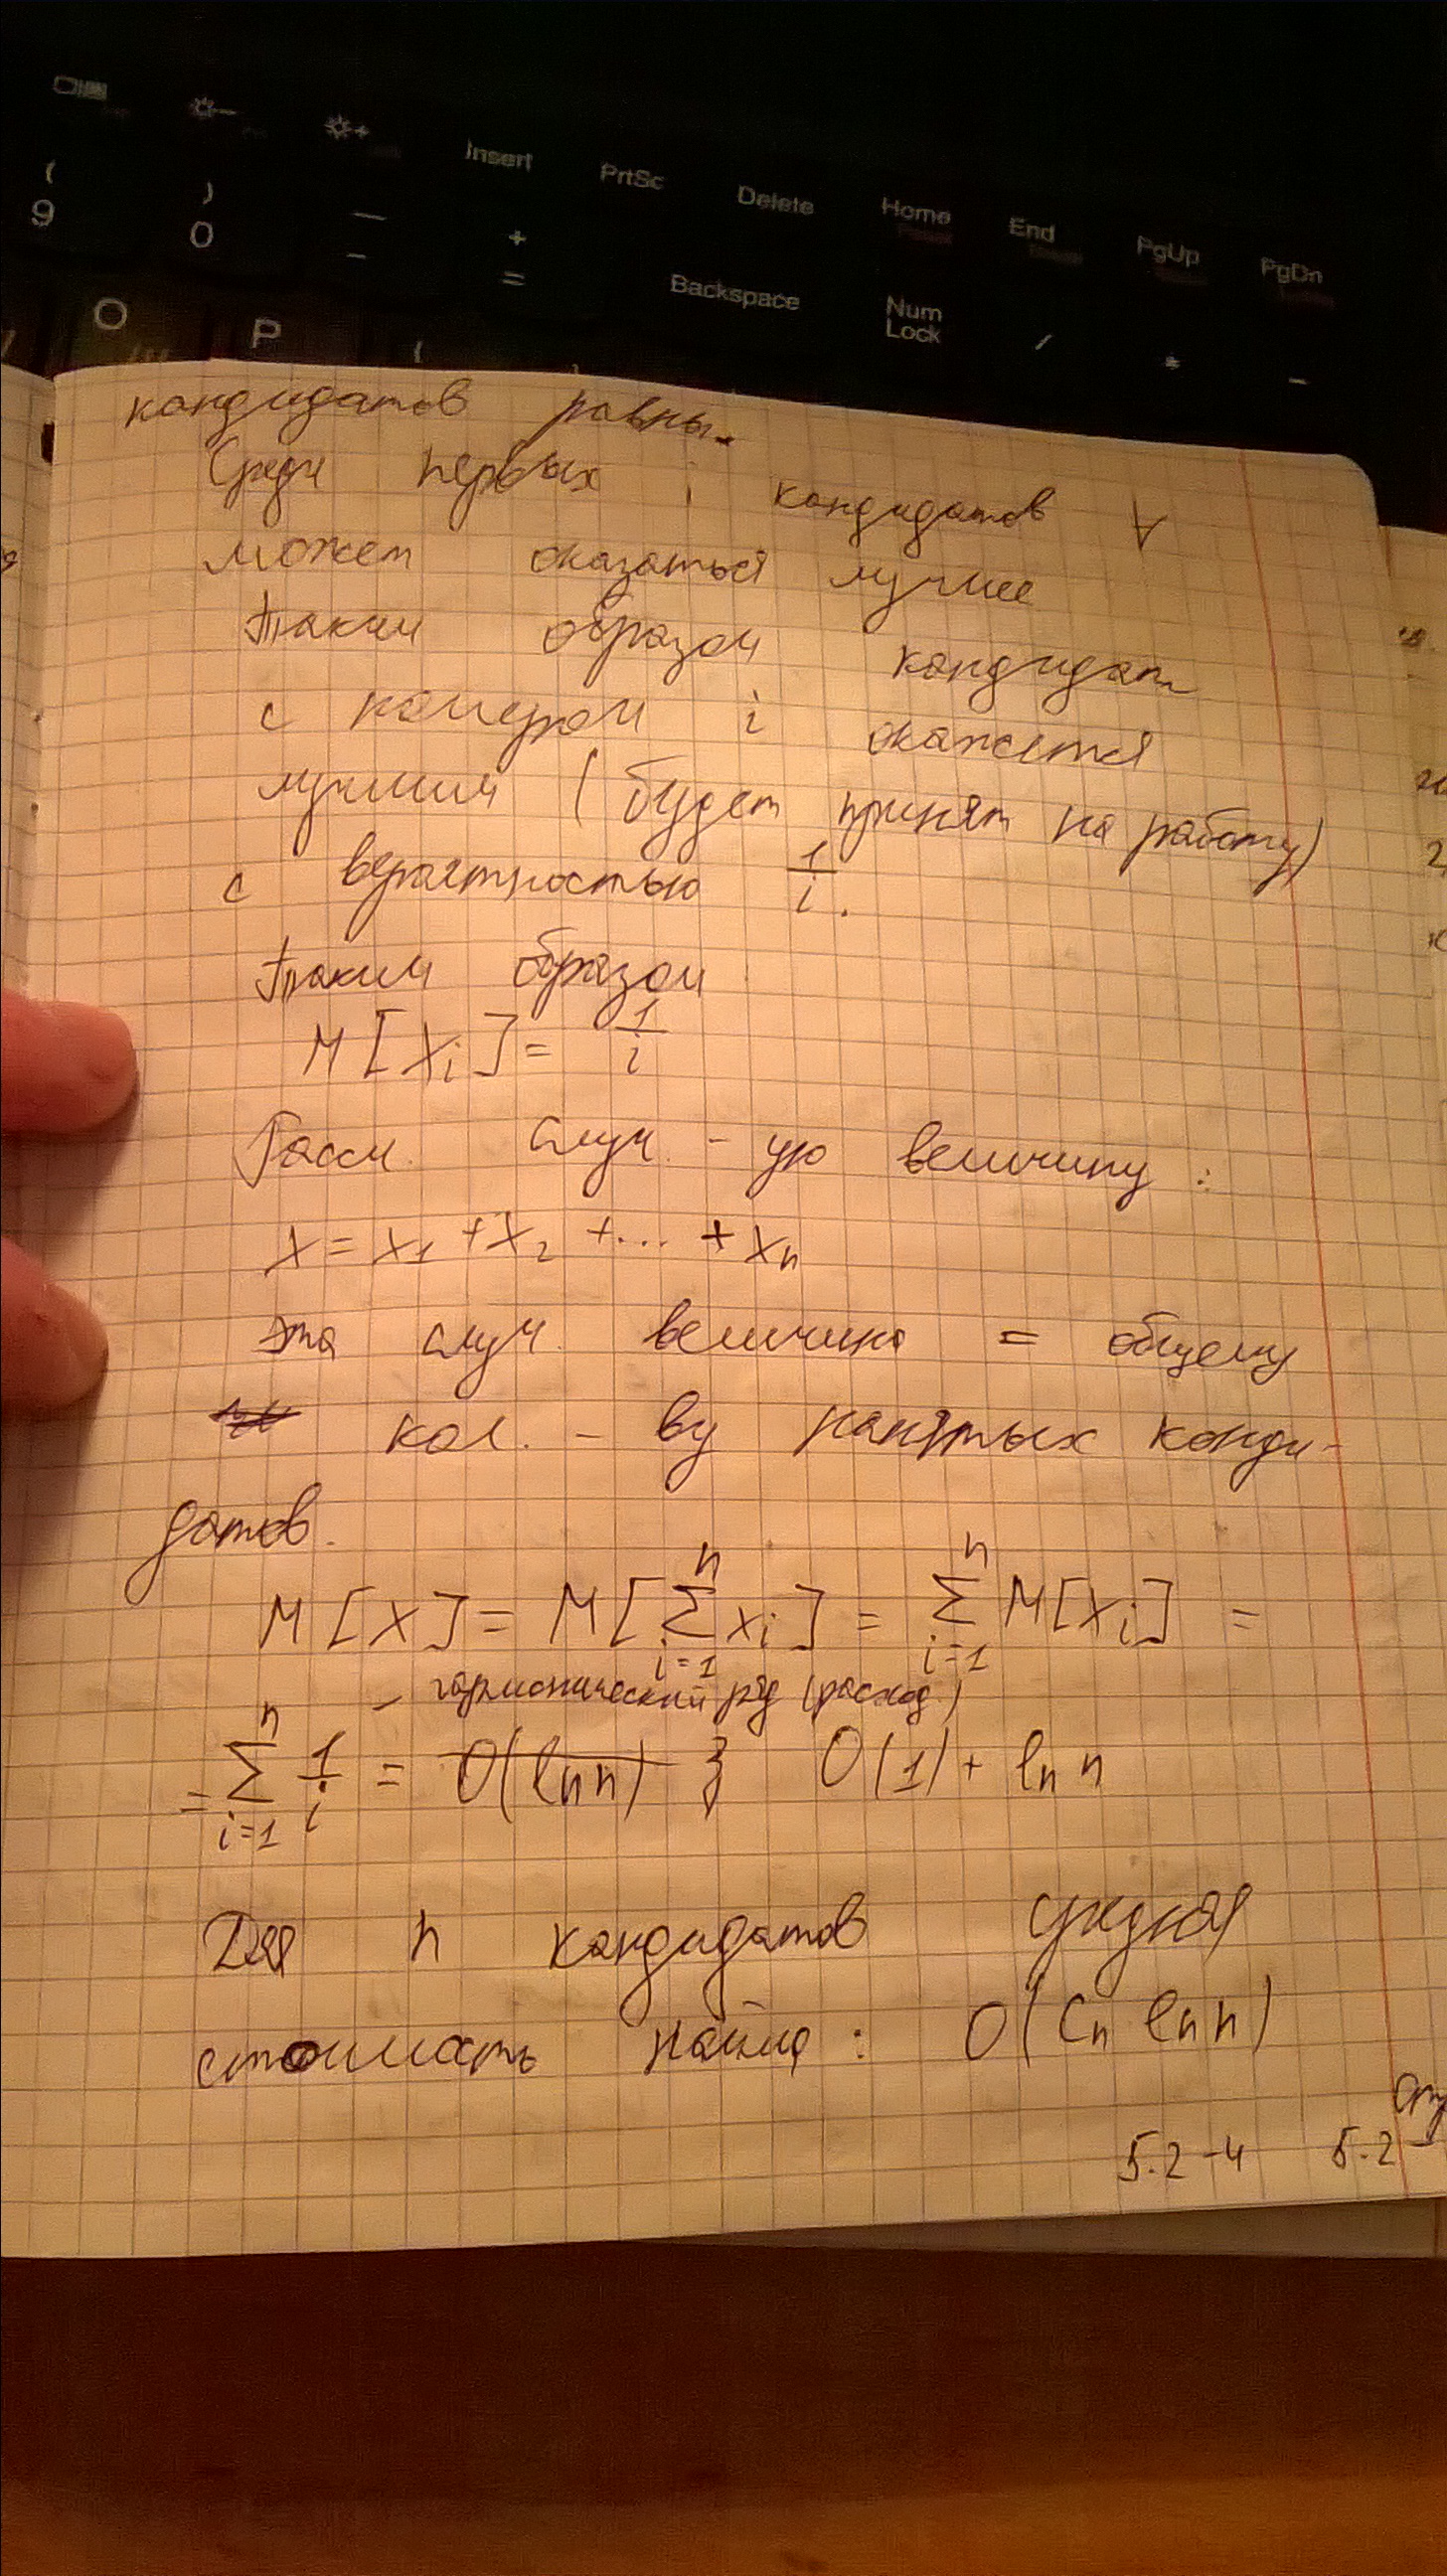 Insert PrtSc Delete Home End PgUp PgDn
( 9 ) 0 — - + = Backspace Num Lock / * -
O P
кандидатов равны.
Среди первых i кандидатов ∀
может оказаться лучше
Таким образом кандидат
с номером i окажется
лучшим (будет принят на работу)
с вероятностью 1/i.
Таким образом
M[Xi] = 1/i
Рассм. случ.-ую величину:
X = X1 + X2 + ... + Xn
Эта случ. величина = общему
кол.-ву нанятых канди-
датов.
M[X] = M[∑ i=1 n xi] = ∑ i=1 n M[Xi] =
- гармонический ряд (расход.)
= ∑ i=1 n 1/i = O(ln n) } O(1) + ln n
Для n кандидатов средняя
стоимость найма: O(Cn ln n)
5.2-4 5.2-